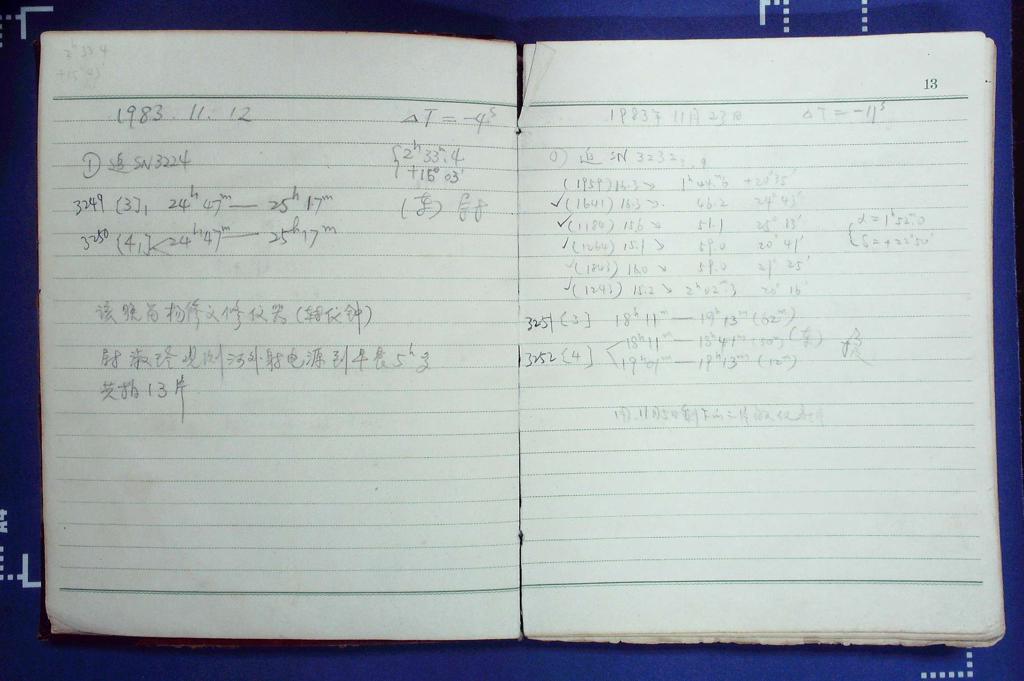 2ʰ 33.4
+15° 03'
1983. 11. 12 ΔT = -4ˢ
① 追 SN3224 2ʰ 33ᵐ.4
+15° 03'
3249 [3], 24ʰ 47ᵐ — 25ʰ 17ᵐ (东)
3250 [4] 24ʰ 47ᵐ — 25ʰ 17ᵐ
该晚前杨修义修仪器(转仪钟)
观测河外射电源到早晨5ʰ
共拍13片
13
1983年11月23日 ΔT = -11ˢ
追 SN 3232
(1959) 16.3 1ʰ 44ᵐ.6 +20° 35'
✓(1641) 16.3 46.2 24° 43'
✓(1180) 15.6 51.1 25° 13' α = 1ʰ 52ᵐ.0
✓(1264) 15.1 59.0 20° 41' δ = +22° 50'
✓(1843) 16.0 59.0 21° 25'
✓(1243) 15.2 2ʰ 02ᵐ.3 20° 16'
3251 [3] 18ʰ 11ᵐ — 19ʰ 13ᵐ (62ᵐ)
3252 [4] 18ʰ 11ᵐ — 18ʰ 41ᵐ (30ᵐ) (东)
19ʰ 01ᵐ — 19ʰ 13ᵐ (12ᵐ)